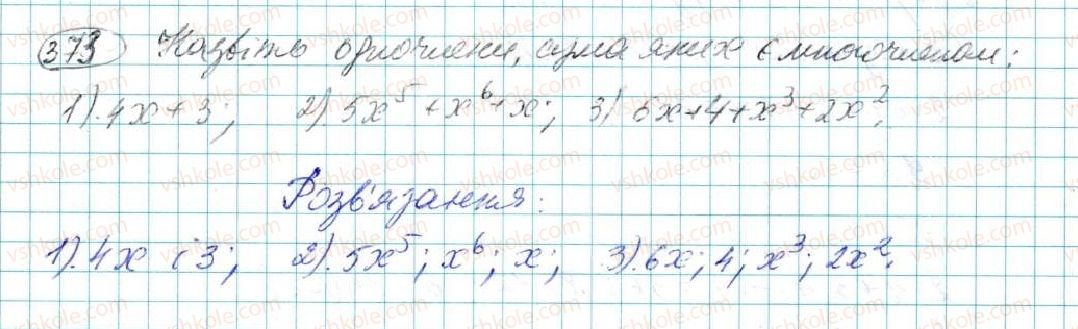 373 Назвіть одночлени, сума яких є многочленом:
1). 4x + 3; 2). 5x⁵ + x⁶ + x; 3) 6x + 4 + x³ + 2x².
Розв'язання:
1). 4x і 3; 2). 5x⁵; x⁶; x; 3). 6x; 4; x³; 2x².